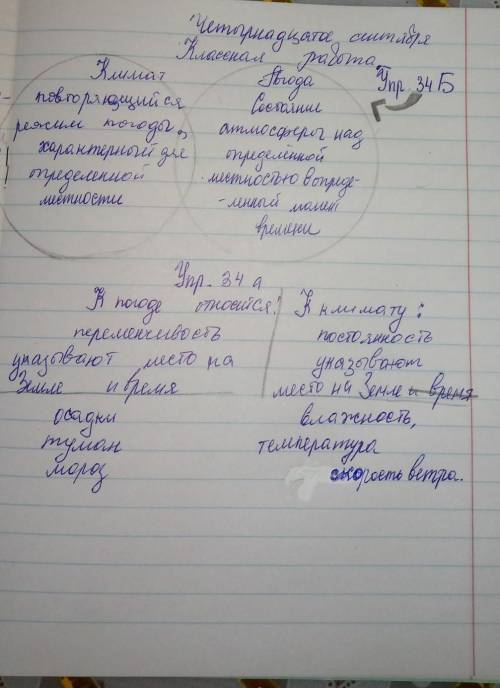 Четырнадцатое сентября
Классная работа
Упр. 34Б
Климат
повторяющийся
режим погоды,
характерный для
определенной
местности
Погода
Состояние
атмосферы над
определённой
местностью в опреде-
-ленный момент
времени
Упр. 34 а
К погоде относится:
переменчивость
указывают место на
Земле и время
осадки
туман
мороз
К климату:
постоянность
указывают
место на Земле и время
влажность,
температура
скорость ветра.